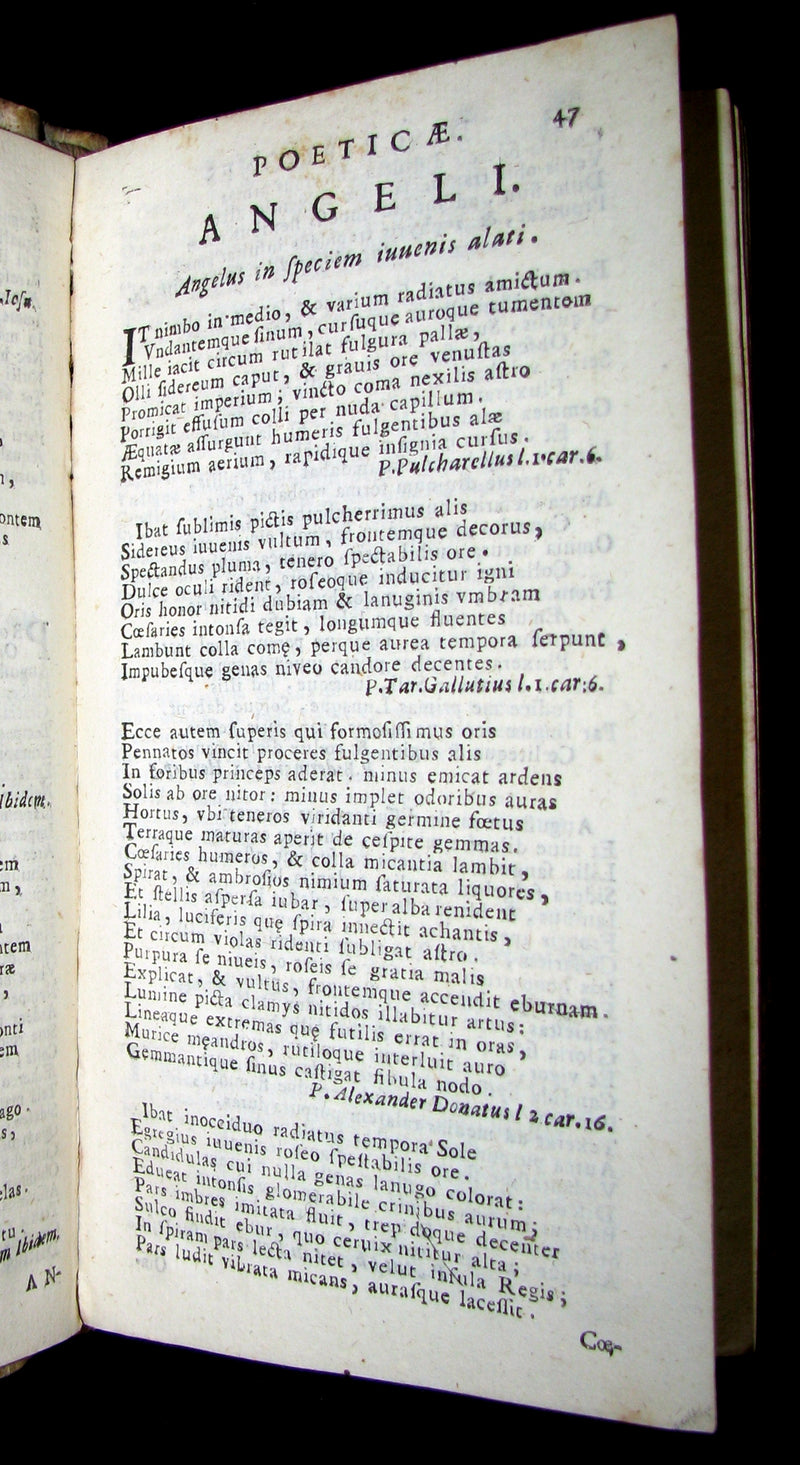 POETICÆ. 47
ANGELI.
Angelus in ſpeciem iuuenis alati.
IT nimbo in medio, & varium radiatus amictum.
Vndantemque ſinum, curſuque auroque tumentem
Mille iacit circum rutilat fulgura pallæ,
Olli ſidereum caput, & grauis ore venuſtas
Promicat imperium; vincto coma nexilis aſtro
Porrigit effuſum colli per nuda capillum.
Æquatæ aſſurgunt humeris fulgentibus alæ
Remigium aerium, rapidique inſignia curſus.
P.Pulcharellus l.1.car.6.
Ibat ſublimis pictis pulcherrimus alis
Sidereus iuuenis vultum, frontemque decorus,
Spectandus pluma, tenero ſpectabilis ore.
Dulce oculi rident, roſeoque inducitur igni
Oris honor nitidi dubiam & lanuginis vmbram
Cœſaries intonſa tegit, longumque fluentes
Lambunt colla comę, perque aurea tempora ſerpunt,
Impubeſque genas niveo candore decentes.
P.Tar.Gallutius l.1.car.6.
Ecce autem ſuperis qui formoſiſſimus oris
Pennatos vincit proceres fulgentibus alis
In foribus princeps aderat. minus emicat ardens
Solis ab ore nitor: minus implet odoribus auras
Hortus, vbi teneros viridanti germine fœtus
Terraque maturas aperit de ceſpite gemmas.
Cœſaries humeros, & colla micantia lambit,
Spirat, & ambroſios nimium ſaturata liquores,
Et ſtellis aſperſa iubar, ſuper alba renident
Lilia, luciferis quę ſpira innectit achantis,
Et circum violas ridenti ſubligat aſtro.
Purpura ſe niueis, roſeis ſe gratia malis
Explicat, & vultus, frontemque accendit eburnam.
Lumine picta clamys nitidos illabitur artus:
Lineaque extremas quę futilis errat in oras,
Murice męandros, rutiloque interluit auro
Gemmantique ſinus caſtigat fibula nodo.
P.Alexander Donatus l 2 car.16.
Ibat inocciduo radiatus tempora Sole
Egregius iuuenis roſeo ſpeſtabilis ore.
Candidulas cui nulla genas lanugo colorat:
Educat intonſis glomerabile crinibus aurum;
Pars imbres imitata fluit, trepidoque decenter
Sulco findit ebur, quo ceruix nititur alta;
In ſpiram pars lecta nitet, velut inſula Regis;
Pars ludit vibrata micans, auraſque laceſſit.
Cœ-
Ieſu.
ontem
s
Ibidem.
em
ntem
ræ
onti
em
ago.
s,
elas.
tu.
m Ibidem.
AN-